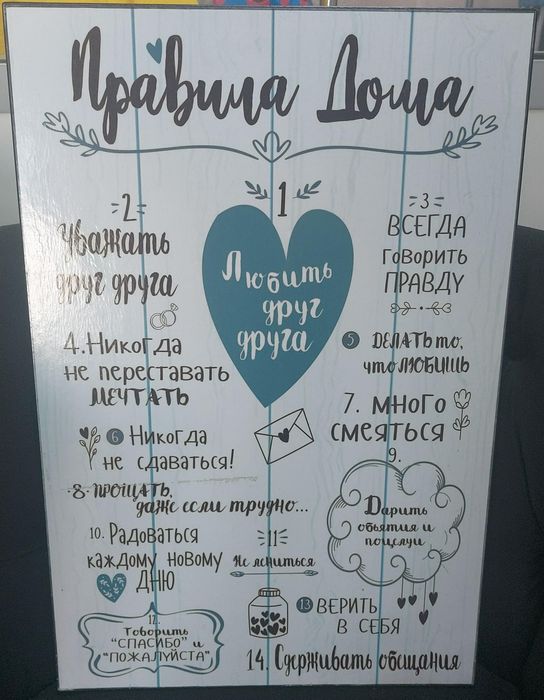 Правила Дома
1
Любить
друг
друга
2
Уважать
друг друга
3
ВСЕГДА
говорить
ПРАВДУ
4. Никогда
не переставать
МЕЧТАТЬ
5 ДЕЛАТЬ то,
что ЛЮБИШЬ
6 Никогда
не сдаваться!
7. много
смеяться
8. ПРОЩАТЬ,
даже если трудно...
9.
Дарить
объятия и
поцелуи
10. Радоваться
каждому новому
ДНЮ
11
Не лениться
12.
Говорить
"СПАСИБО" и
"ПОЖАЛУЙСТА"
13 ВЕРИТЬ
В СЕБЯ
14. Сдерживать обещания